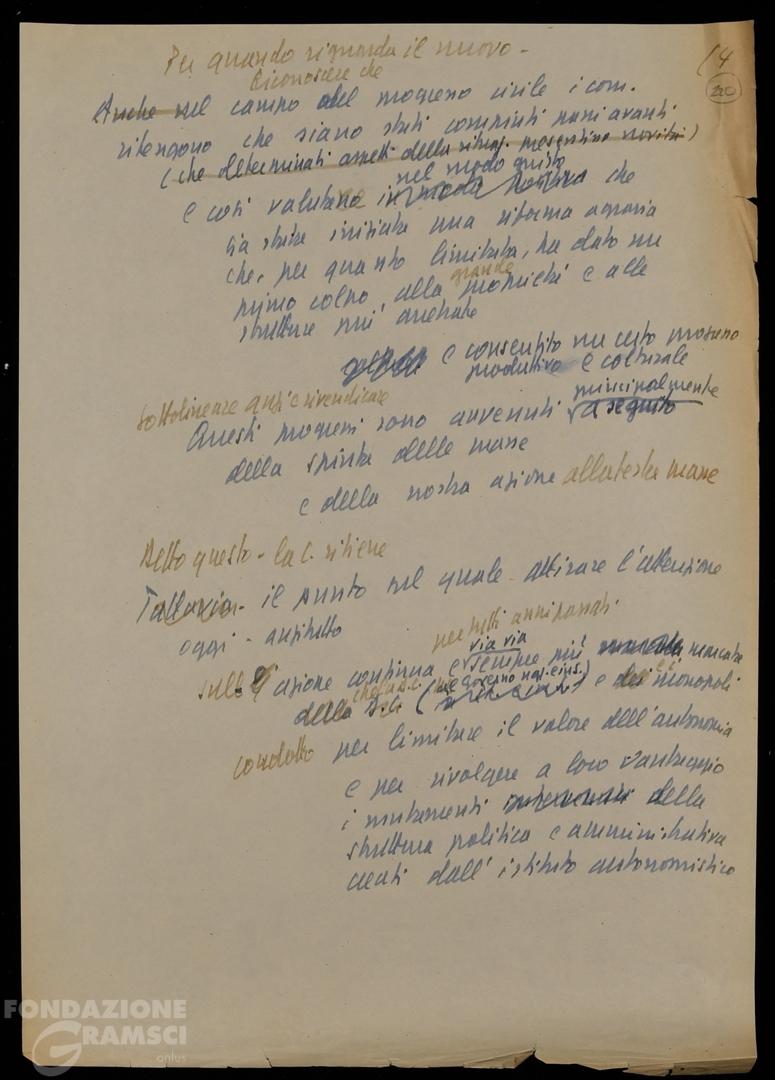 Per quando riguarda il nuovo -
14
20
Riconoscere che
Anche nel campo del progresso civile i com.
ritengono che siano stati compiuti passi avanti
(che determinati aspetti della situaz. presentino novità)
nel modo giusto
e così valutano in modo positivo che
sia stata iniziata una riforma agraria
che, per quanto limitata, ha dato un
primo colpo, alla grande proprietà e alle
strutture più arretrate
e consentito un certo progresso
produttivo e colturale
Sottolineare anzi e rivendicare
principalmente
Questi progressi sono avvenuti a seguito
della spinta delle masse
e della nostra azione alla testa masse
Detto questo - la C. ritiene
Tuttavia - il punto sul quale attirare l'attenzione
oggi - anzitutto
per tutti anni passati
via via
sull' azione continua e sempre più marcata
della D.C. e dei monopoli
condotto per limitare il valore dell'autonomia
e per rivolgere a loro vantaggio
i mutamenti della
struttura politica e amministrativa
creati dall'istituto autonomistico
FONDAZIONE
GRAMSCI
onlus